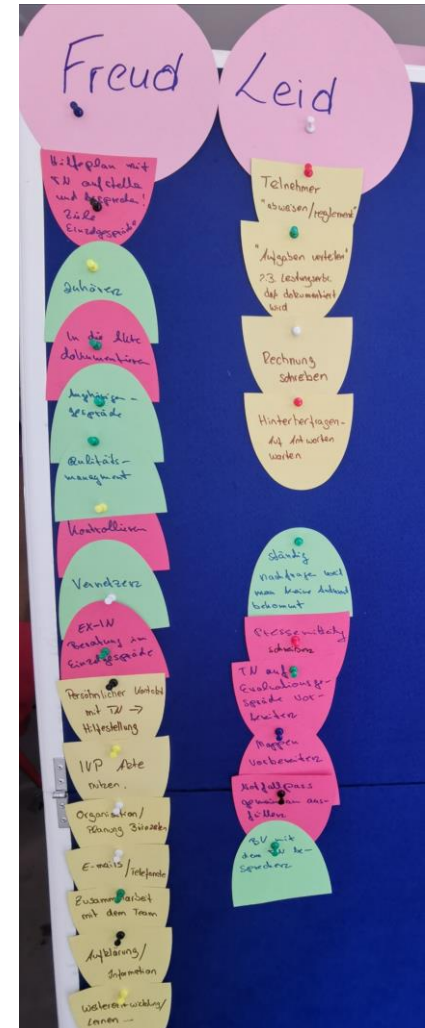 Freud
Hilfeplan mit
TN aufstellen
und besprechen!
Ziele
Einzelgespräch"
Zuhören
In die Akte
dokumentieren
Angehörigen-
gespräche
Qualitäts-
managment
Kontrollieren
Vernetzen
EX-IN
Beratung im
Einzelgespräche
Persönlicher Kontakt
mit TN →
Hilfestellung
IVP Akte
Organisation/
Planung
E-mails/Telefonate
Zusammenarbeit
mit dem Team
Aufklärung/
Information
Weiterentwicklung/
Lernen →
Leid
Teilnehmer
"abweisen/reglement"
"Aufgaben verteilen"
z.B. Leistungserbr.
das dokumentiert
wird
Rechnung
schreiben
Hinterherfragen-
Auf Antworten
warten
ständig
nachfragen weil
man keine Antwort
bekommt
schreiben
TN auf
Evaluationsge-
spräche vor-
bereiten
Mappen
vorbereiten
Notfallpass
gemeinsam aus-
füllen
BV mit
dem TN be-
sprechen